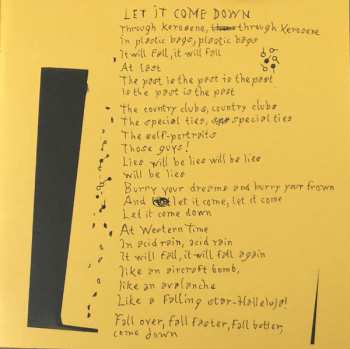 LET IT COME DOWN
Through Kerosene, through Kerosene
In plastic bags, plastic bags
It will fall, it will fall
At last
The past is the past is the past
is the past is the past
The country clubs, country clubs
The special ties, special ties
The self-portraits
Those guys!
Lies will be lies will be lies
will be lies
Burry your dreams and burry your frown
And let it come, let it come
Let it come down
At Western Time
In acid rain, acid rain
It will fall, it will fall again
like an aircraft bomb,
like an avalanche
Like a falling star-Halleluja!
Fall over, fall faster, fall better,
come down